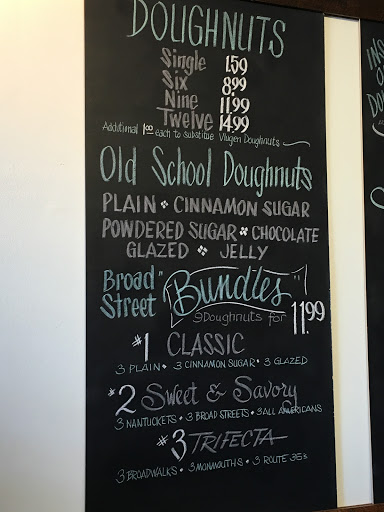 DOUGHNUTS
Single 1.59
Six 8.99
Nine 11.99
Twelve 14.99
Additional 1.00 each to substitue Vlugën Doughnuts
Old School Doughnuts
PLAIN • CINNAMON SUGAR
POWDERED SUGAR • CHOCOLATE
GLAZED • JELLY
Broad Street "Bundles"
9 Doughnuts for 11.99
#1 CLASSIC
3 PLAIN • 3 CINNAMON SUGAR • 3 GLAZED
#2 Sweet & Savory
3 NANTUCKETS • 3 BROAD STREETS • 3 ALL AMERICANS
#3 TRIFECTA
3 BROADWALKS • 3 MONMOUTHS • 3 ROUTE 35s